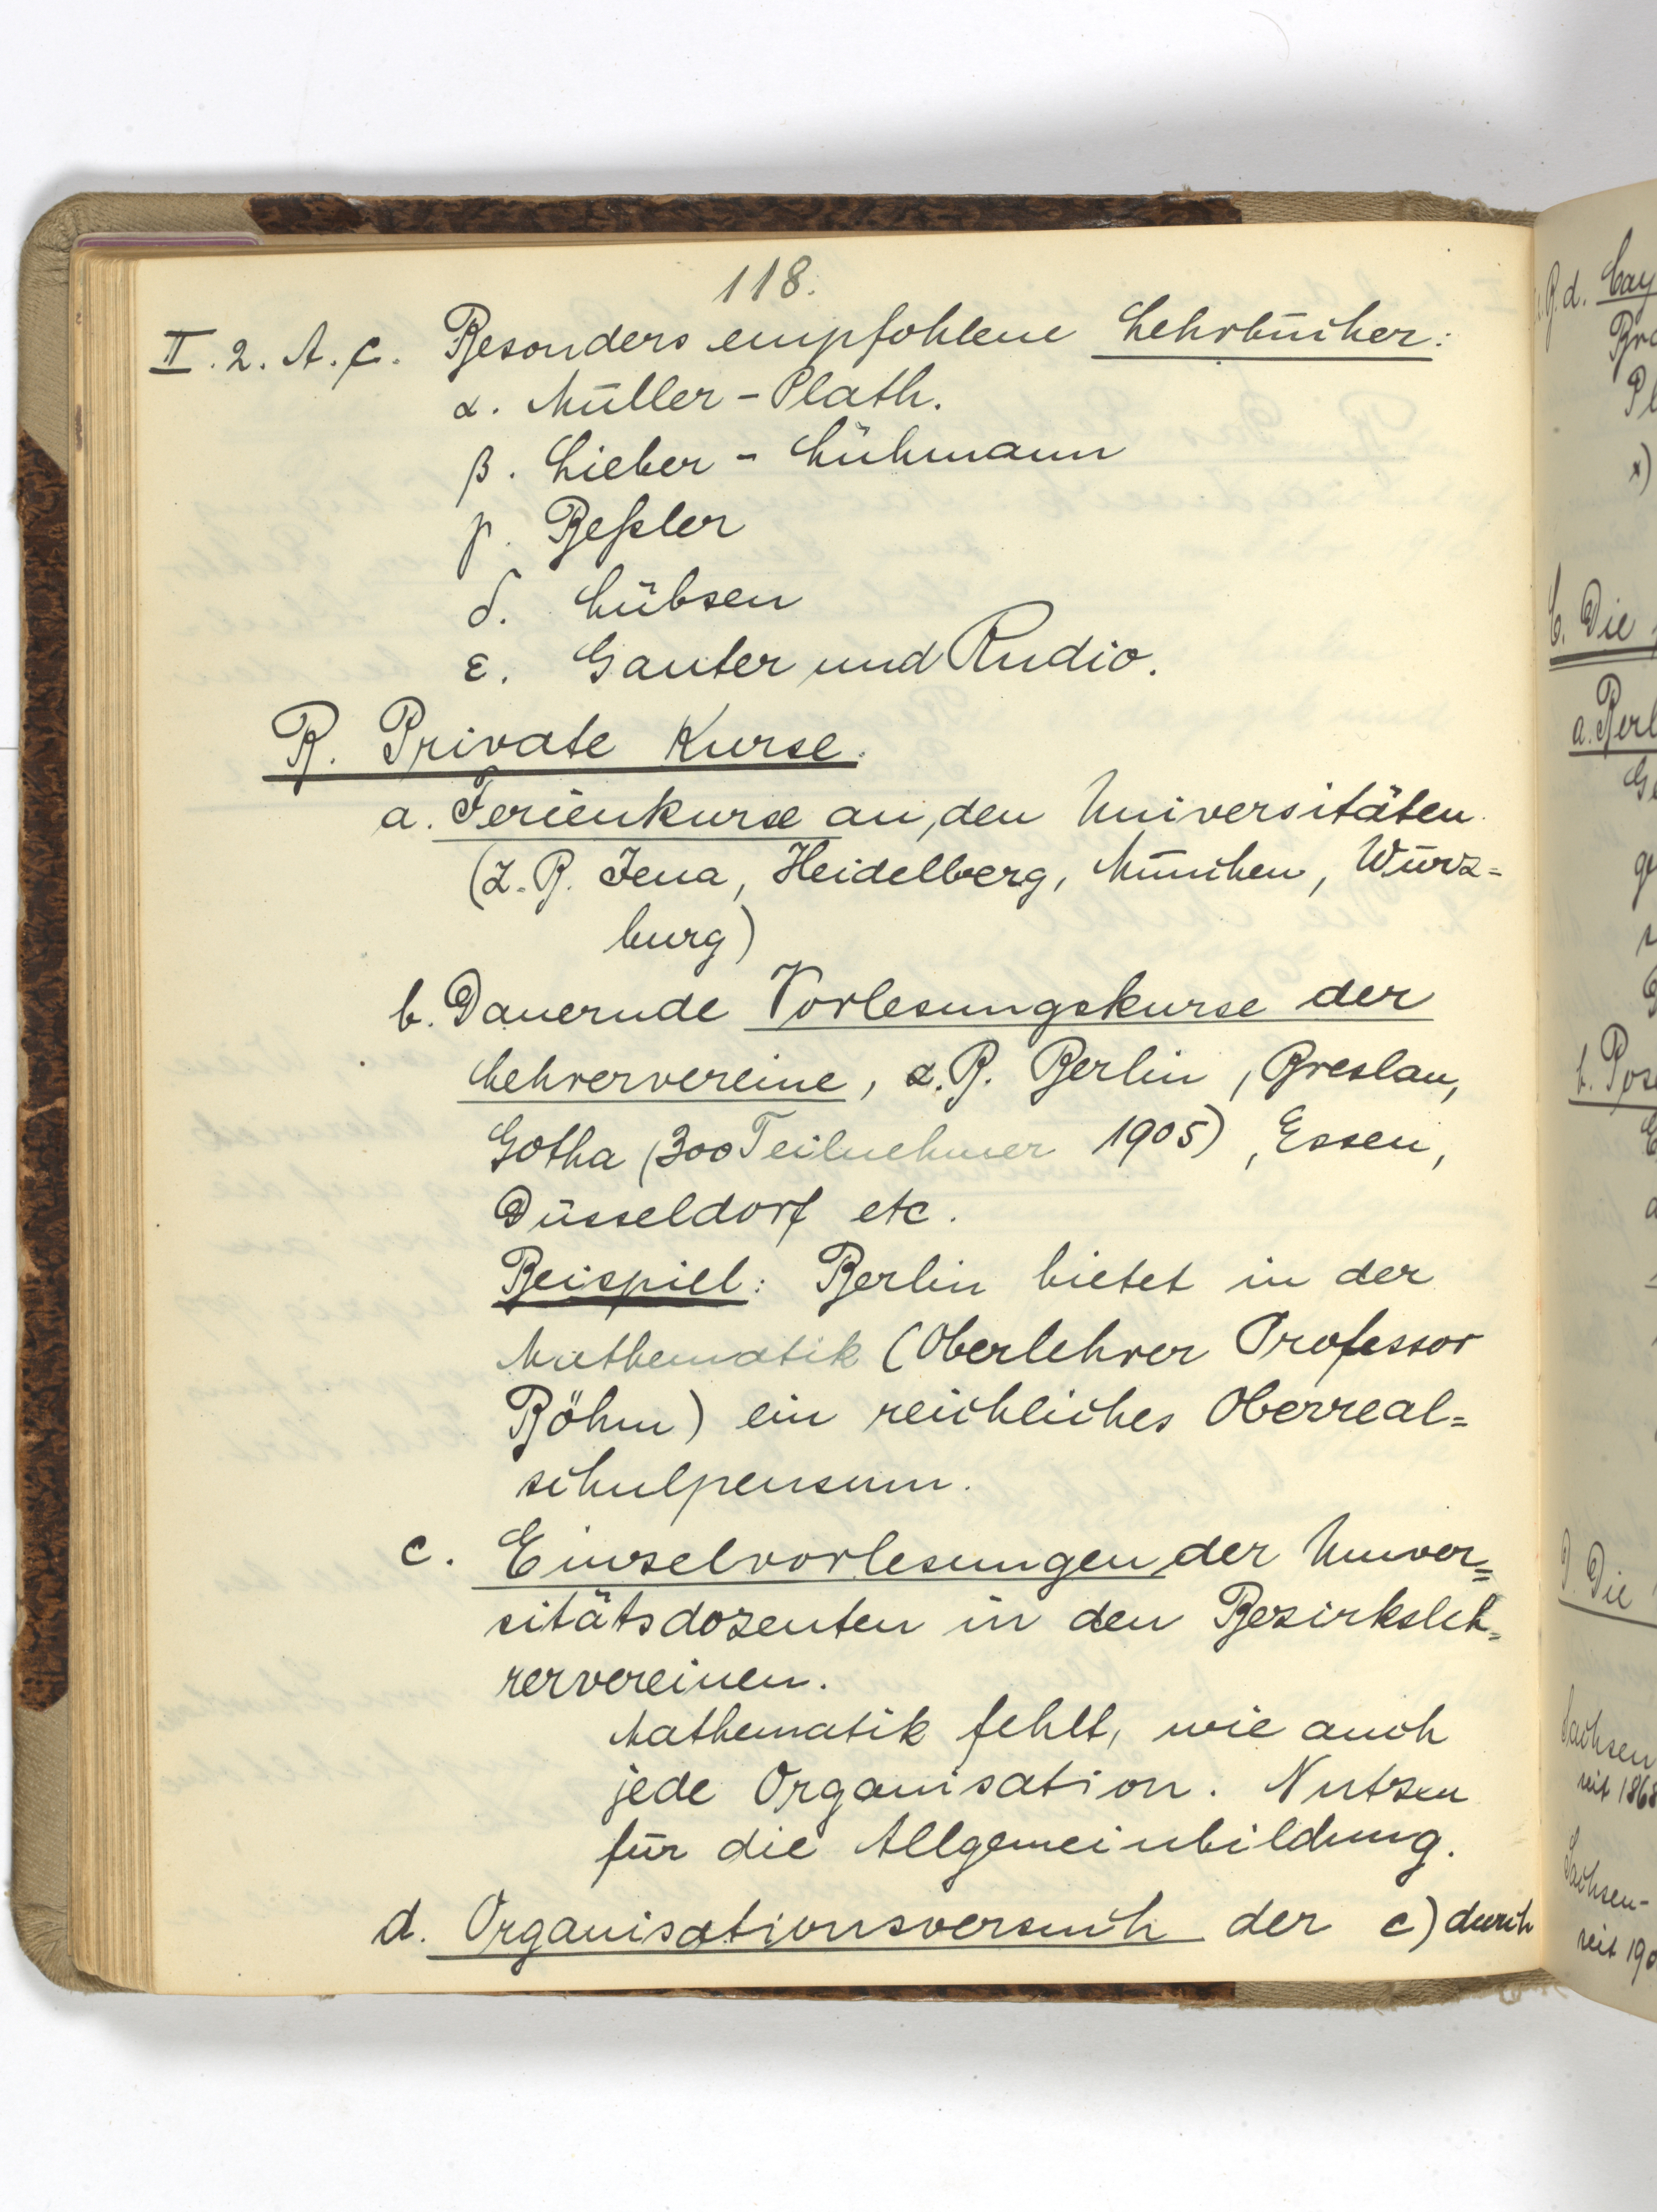 118.
II. 2. A. c. Besonders empfohlene Lehrbücher:
α. Müller-Plath.
β. Lieber - Lühmann
γ. Beßler
δ. Lübsen
ε. Ganter und Rudio.
B. Private Kurse.
a. Ferienkurse an den Universitäten
(z. B. Jena, Heidelberg, München, Würz=
burg)
b. Dauernde Vorlesungskurse der
Lehrervereine, z. B. Berlin, Breslau,
Gotha (300 Teilnehmer 1905), Essen,
Düsseldorf etc.
Beispiel: Berlin bietet in der
Mathematik (Oberlehrer Professor
Böhm) ein reichliches Oberreal=
schulpensum.
c. Einzelvorlesungen der Univer=
sitätsdozenten in den Bezirksleh=
rervereinen.
Mathematik fehlt, wie auch
jede Organisation. Nutzen
für die Allgemeinbildung.
d. Organisationsversuch der c) durch
d. Bay
C. Die
a. Berl
b. Pose
D. Die
Sachsen
seit 1868
Sachsen-
seit 190